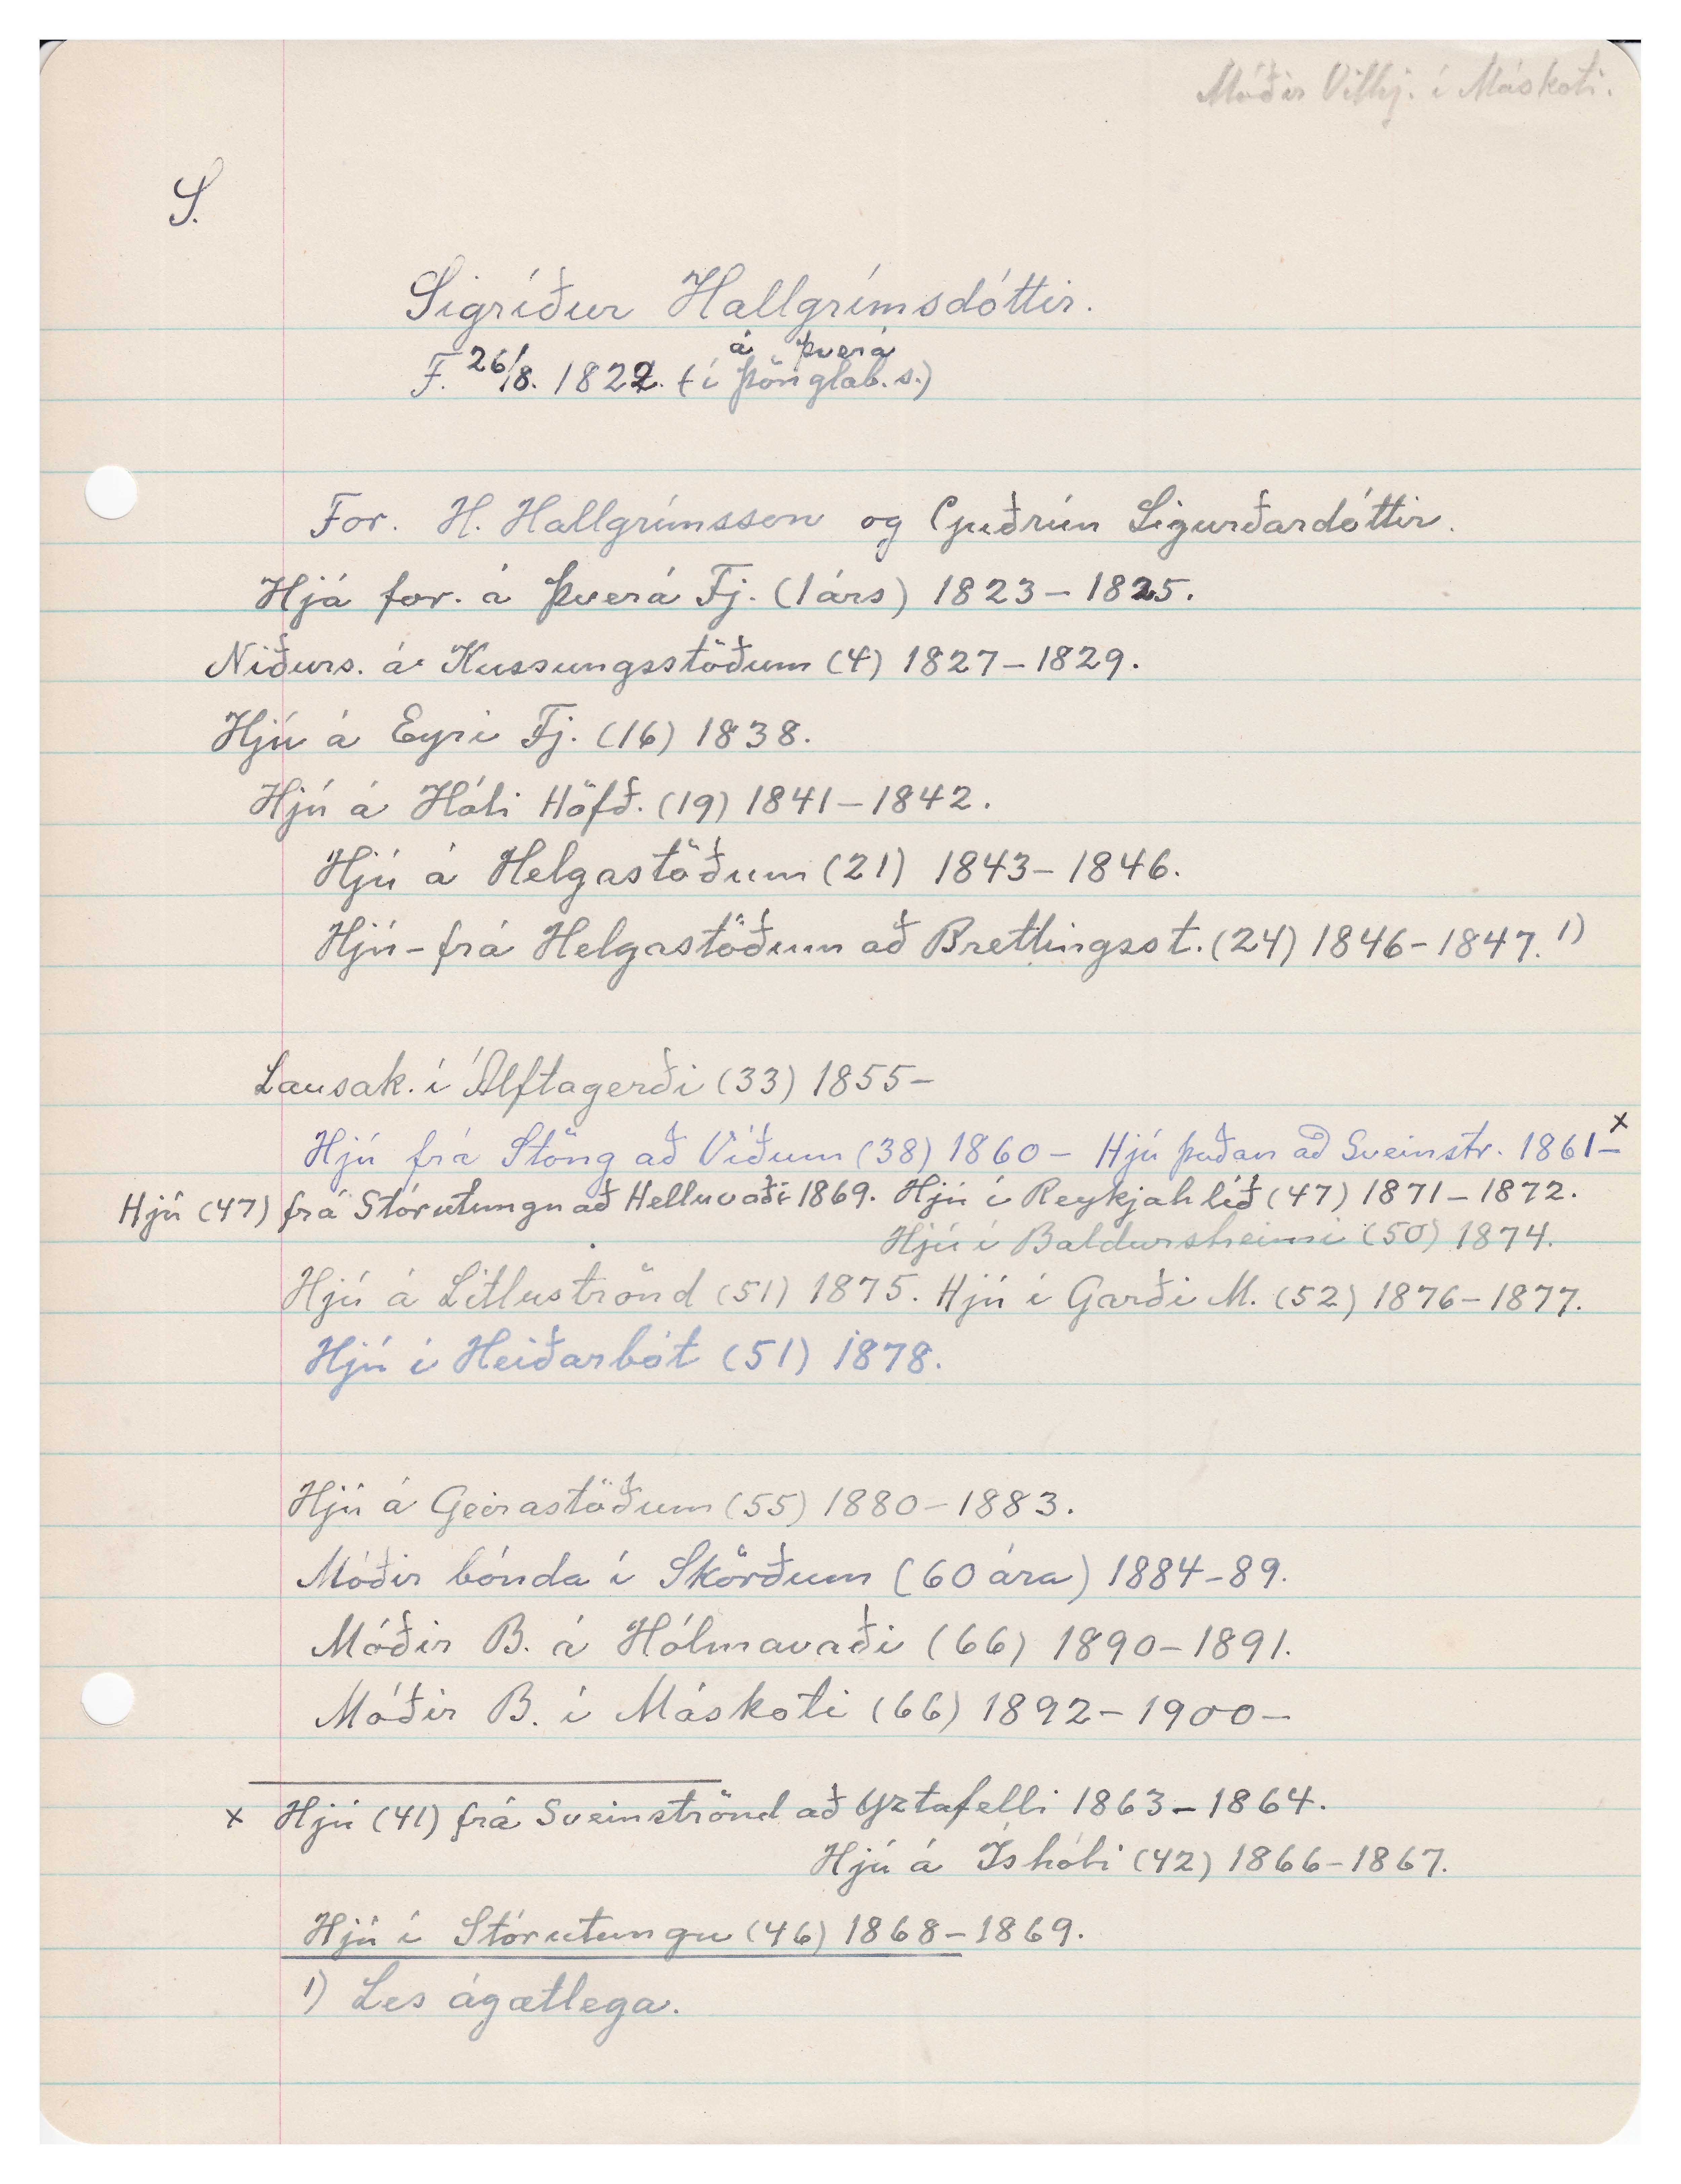 Móðir Vilhj. í Máskoti.
S.
Sigríður Hallgrímsdóttir.
á Þverá
F. 26/8. 1822. (í Þönglab.s.)
For. H. Hallgrímsson og Guðrún Sigurðardóttir.
Hjá for. á Þverá Fj. (1árs) 1823-1825.
Niðurs. á Kussungsstöðum (4) 1827-1829.
Hjú á Eyri Fj. (16) 1838.
Hjú á Hóli Höfð. (19) 1841-1842.
Hjú á Helgastöðum (21) 1843-1846.
Hjú-frá Helgastöðum að Brettingsst. (24) 1846-1847. 1)
Lausak. í Álftagerði (33) 1855-
Hjú frá Stöng að Víðum (38) 1860- Hjú þaðan að Sveinstr. 1861- x
Hjú (47) frá Stórutungu að Helluvaði 1869. Hjú í Reykjahlíð (47) 1871-1872.
Hjú í Baldursheimi (50) 1874.
Hjú á Litluströnd (51) 1875. Hjú í Garði M. (52) 1876-1877.
Hjú í Heiðarbót (51) 1878.
Hjú á Geirastöðum (55) 1880-1883.
Móðir bónda í Skörðum (60 ára) 1884-89.
Móðir B. á Hólmavaði (66) 1890-1891.
Móðir B. í Máskoti (66) 1892-1900-
x Hjú (41) frá Sveinströnd að Yztafelli 1863-1864.
Hjú á Íshóli (42) 1866-1867.
Hjú í Stórutungu (46) 1868-1869.
1) Les ágætlega.